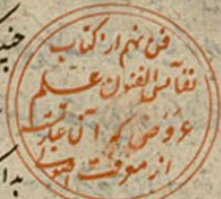 فن نهم از کتاب
نفائس الفنون علم
عروض که آن عبارت
از معرفت